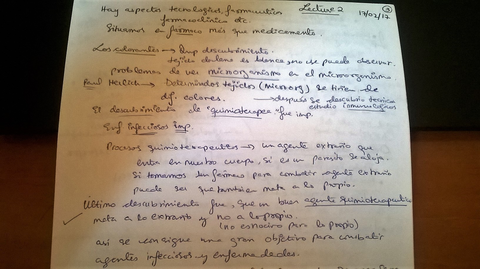 Hay aspectos tecnológicos, farmaceutico Lecture 2
farmacoclínico etc. 17/02/17
Situarnos en farmaco más que medicamento.
Los colorantes → Imp descubrimiento.
tejido de lana es blanco, no se puede observar.
problemas de ver microorganismo en el microorganismo
Paul → Determinados tejidos (microorg) se tiñen de
dif. colores. → después se descubrió tecnica
El descubrimiento de "quimioterapia" fue imp. estudio
Enf infecciosas imp.
Procesos quimioterapeutico → un agente extraño que
entra en nuestro cuerpo, si es un parasito se aloja.
Si tomamos un farmaco para combatir agente extraño
puede ser que también mata a lo propio.
Último descubrimiento fue, que un buen agente quimioterapeutico
mata a lo extraño y no a lo propio.
(no es nocivo para lo propio)
así se consigue una gran objetivo para combatir
agentes infecciosos y enfermedades.